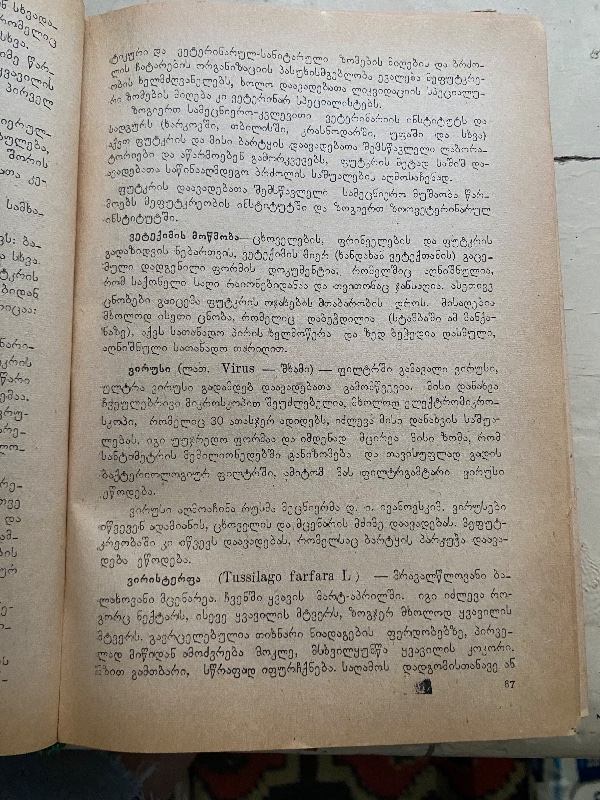 ტიკური და ვეტერინარულ-სანიტარული ზომების მიღება და ბრძო-
ლის ჩატარების ორგანიზაციის პასუხისმგებლობა ევალება მეფუტკრე-
ობის ხელმძღვანელებს, ხოლო დაავადებათა ლიკვიდაციის სპეციალუ-
რი ზომების მიღება კი ვეტერინარ სპეციალისტებს.
ზოგიერთ სამეცნიერო-კვლევითი ვეტერინარიის ინსტიტუტს და
სადგურს (ხარკოვში, თბილისში, კრასნოდარში, უფაში და სხვა)
აქვთ ფუტკრის და მისი ბარტყის დაავადებათა შემსწავლელი ლაბორა-
ტორიები და აწარმოებენ გამოკვლევებს, ფუტკრის მეტად საშიშ და-
ავადებათა საწინააღმდეგო ბრძოლის საშუალების აღმოსაჩენად.
ფუტკრის დაავადებათა შემსწავლელი სამეცნიერო მუშაობა წარ-
მოებს მეფუტკრეობის ინსტიტუტში და ზოგიერთ ზოოვეტერინარულ
ინსტიტუტში.
ვეტექიმის მოწმობა—ცხოველების, ფრინველების და ფუტკრის
გადაზიდვის ნებართვის, ვეტექიმის მიერ (ხანდახან ვეტექთანის) გაცე-
მული დადგენილი ფორმის დოკუმენტია, რომელშიც აღნიშნულია,
რომ საქონელი სადი რაიონებიდანაა და თვითონაც ჯანსაღია. ასეთივე
ცნობები გაიცემა ფუტკრის ოჯახების მთაბარობის დროს. მისაღებია
მხოლოდ ისეთი ცნობა, რომელიც დაბეჭდილია (სტამბაში ან მანქა-
ნაზე), აქვს სათანადო პირის ხელმოწერა და ზედ ბეჭედია დასმული,
აღნიშნული სათანადო თარიღით.
ვირუსი (ლათ. Virus — შხამი) — ფილტრში გამავალი ვირუსი,
ულტრა ვირუსი გადამდებ დაავადებათა გამომწვევია. მისი დანახვა
ჩვეულებრივი მიკროსკოპით შეუძლებელია, მხოლოდ ელექტრომიკრო-
სკოპი, რომელიც 30 ათასჯერ ადიდებს, იძლევა მისი დანახვის საშუა-
ლებას. იგი უუჯრედო ფორმაა და იმდენად მცირეა მისი ზომა, რომ
სანტიმეტრის მემილიონედებში განიზომება და თავისუფლად გადის
ბაქტერიოლოგიურ ფილტრში, ამიტომ მას ფილტრგამტარი ვირუსი
ეწოდება.
ვირუსი აღმოაჩინა რუსმა მეცნიერმა დ. ი. ივანოვსკიმ. ვირუსები
იწვევენ ადამიანის, ცხოველის და მცენარის მძიმე დაავადებას. მეფუტ-
კრეობაში კი იწვევს დაავადებას, რომელსაც ბარტყის პარკუჭა დაავა-
დება ეწოდება.
ვირისტერფა (Tussilago farfara L) — მრავალწლოვანი ბა-
ლახოვანი მცენარეა. ჩვენში ყვავის მარტ-აპრილში. იგი იძლევა რო-
გორც ნექტარს, ისევე ყვავილის მტვერს, ზოგჯერ მხოლოდ ყვავილის
მტვერს. გავრცელებულია თიხნარი ნიადაგების ფერდობებზე, პირვე-
ლად მიწიდან ამოძვრება მოკლე, მსხვილყუნწა ყვავილის კოკორი.
მზით გამთბარი, სწრაფად იფურჩქნება. საღამოს დადგომისთანავე ან
67